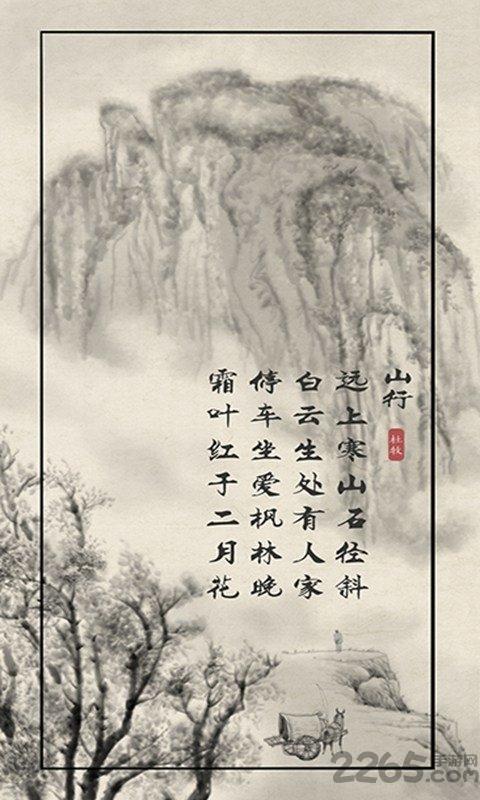 山行
杜牧
远上寒山石径斜
白云生处有人家
停车坐爱枫林晚
霜叶红于二月花
2265.com
手游网